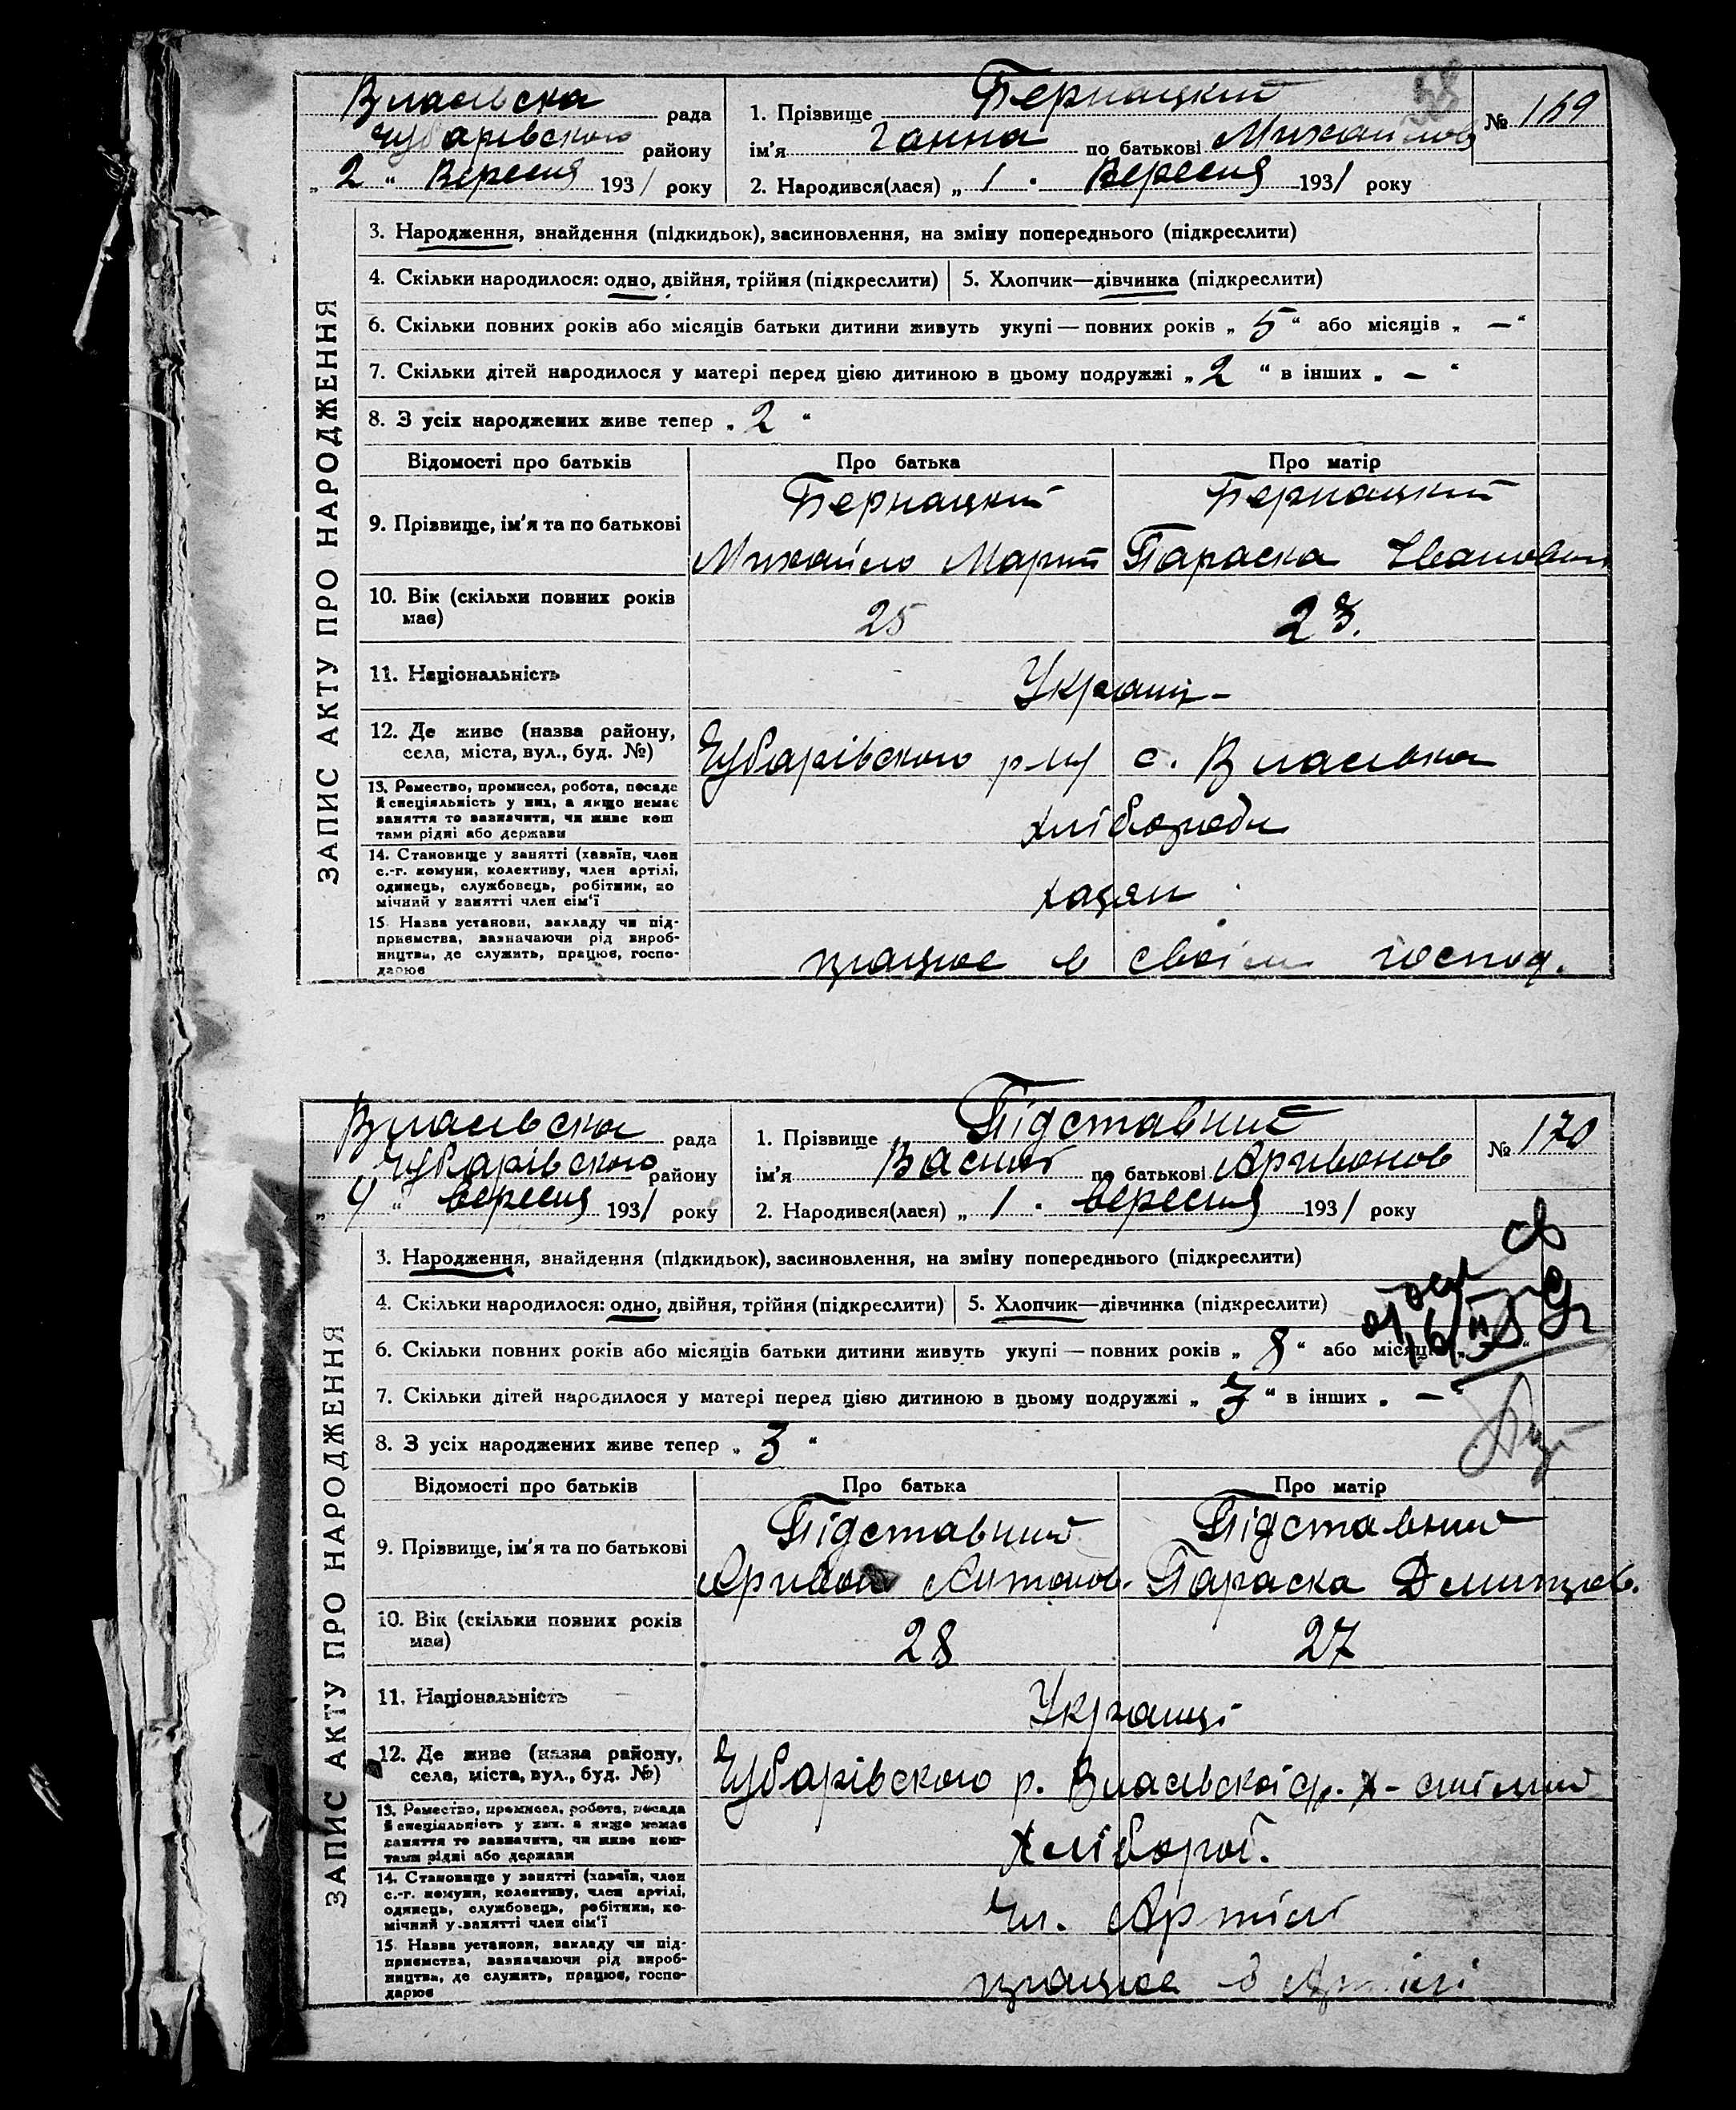 Власівска рада
Чубарівського району
„2“ Вересня 1931 року
1. Прізвище Бернацкий
ім'я Ганна по батькові Михайлов
2. Народився(лася) „1“ Вересня 1931 року
№ 169
ЗАПИС АКТУ ПРО НАРОДЖЕННЯ
3. Народження, знайдення (підкидьок), засиновлення, на зміну попереднього (підкреслити)
4. Скільки народилося: одно, двійня, трійня (підкреслити) 5. Хлопчик—дівчинка (підкреслити)
6. Скільки повних років або місяців батьки дитини живуть укупі — повних років „5“ або місяців „—“
7. Скільки дітей народилося у матері перед цією дитиною в цьому подружжі „2“ в інших „—“
8. З усіх народжених живе тепер „2“
Відомості про батьків Про батька Про матір
9. Прізвище, ім'я та по батькові Бернацкий Бернацкий
Михайло Параска Іванов
10. Вік (скільки повних років має) 25 23.
11. Національність Українц-
12. Де живе (назва району, села, міста, вул., буд. №) Чубарівського р-ну с. Власівка
13. Ремество, промисел, робота, посада й спеціяльність у них, а якщо немає заняття то зазначити, чи живе коштами рідні або держави
хлібороби
14. Становище у занятті (хазяїн, член с.-г. комуни, колективу, член артілі, одинець, службовець, робітник, помічний у занятті член сім'ї
хазяи
15. Назва установи, закладу чи підприємства, зазначаючи рід виробництва, де служить, працює, господарює
працює в своім господ.
Власівска рада
Чубарівського району
„4“ вересня 1931 року
1. Прізвище Підставний
ім'я Василь по батькові Аривонов
2. Народився(лася) „1“ вересня 1931 року
№ 170
ЗАПИС АКТУ ПРО НАРОДЖЕННЯ
3. Народження, знайдення (підкидьок), засиновлення, на зміну попереднього (підкреслити)
4. Скільки народилося: одно, двійня, трійня (підкреслити) 5. Хлопчик—дівчинка (підкреслити)
6. Скільки повних років або місяців батьки дитини живуть укупі — повних років „8“ або місяців
7. Скільки дітей народилося у матері перед цією дитиною в цьому подружжі „3“ в інших „—“
8. З усіх народжених живе тепер „3“
Відомості про батьків Про батька Про матір
9. Прізвище, ім'я та по батькові Підставний Підставний
Аривон Антонов. Параска Дмитров.
10. Вік (скільки повних років має) 28 27
11. Національність Українці
12. Де живе (назва району, села, міста, вул., буд. №) Чубарівського р. Власівскої
13. Ремество, промисел, робота, посада й спеціяльність у них, а якщо немає заняття то зазначити, чи живе коштами рідні або держави
Хлібороб.
14. Становище у занятті (хазяїн, член с.-г. комуни, колективу, член артілі, одинець, службовець, робітник, помічний у занятті член сім'ї
Чл. Артілі
15. Назва установи, закладу чи підприємства, зазначаючи рід виробництва, де служить, працює, господарює
працює в Артілі